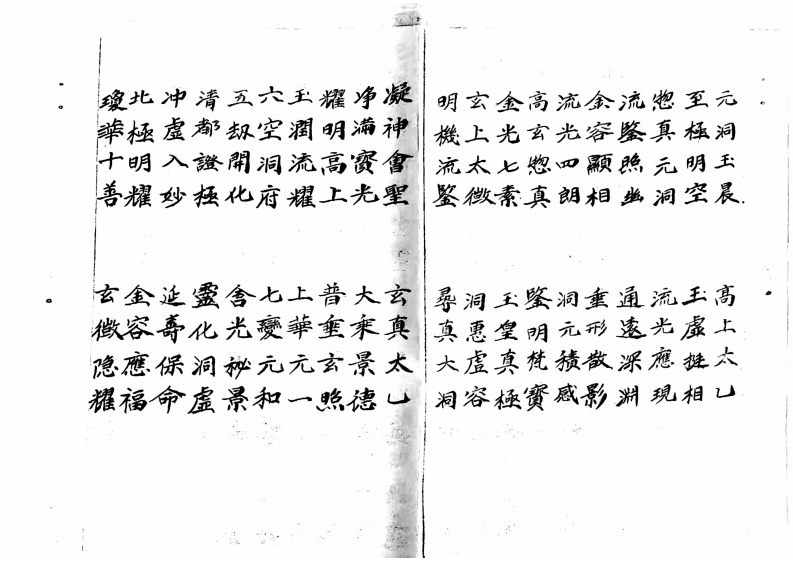 元洞玉晨 高上太乙
至極明空 玉虛挺相
惣真元洞 流光應現
流鑒照幽 通遠深淵
金容顯相 垂形散影
流光四朗 洞元積感
高玄惣真 鑒明梵寶
金光七素 玉皇真極
玄上太微 洞惠虛容
明機流鑒 尋真大洞
凝神會聖 玄真太乙
净滿寶光 大乘景德
耀明高上 普垂玄照
玉潤流耀 上華元一
六空洞府 七變元和
五劫開化 含光秘景
清都證極 靈化洞虛
冲虛入妙 延壽保命
北極明耀 金容應福
瓊華十善 玄微隐耀